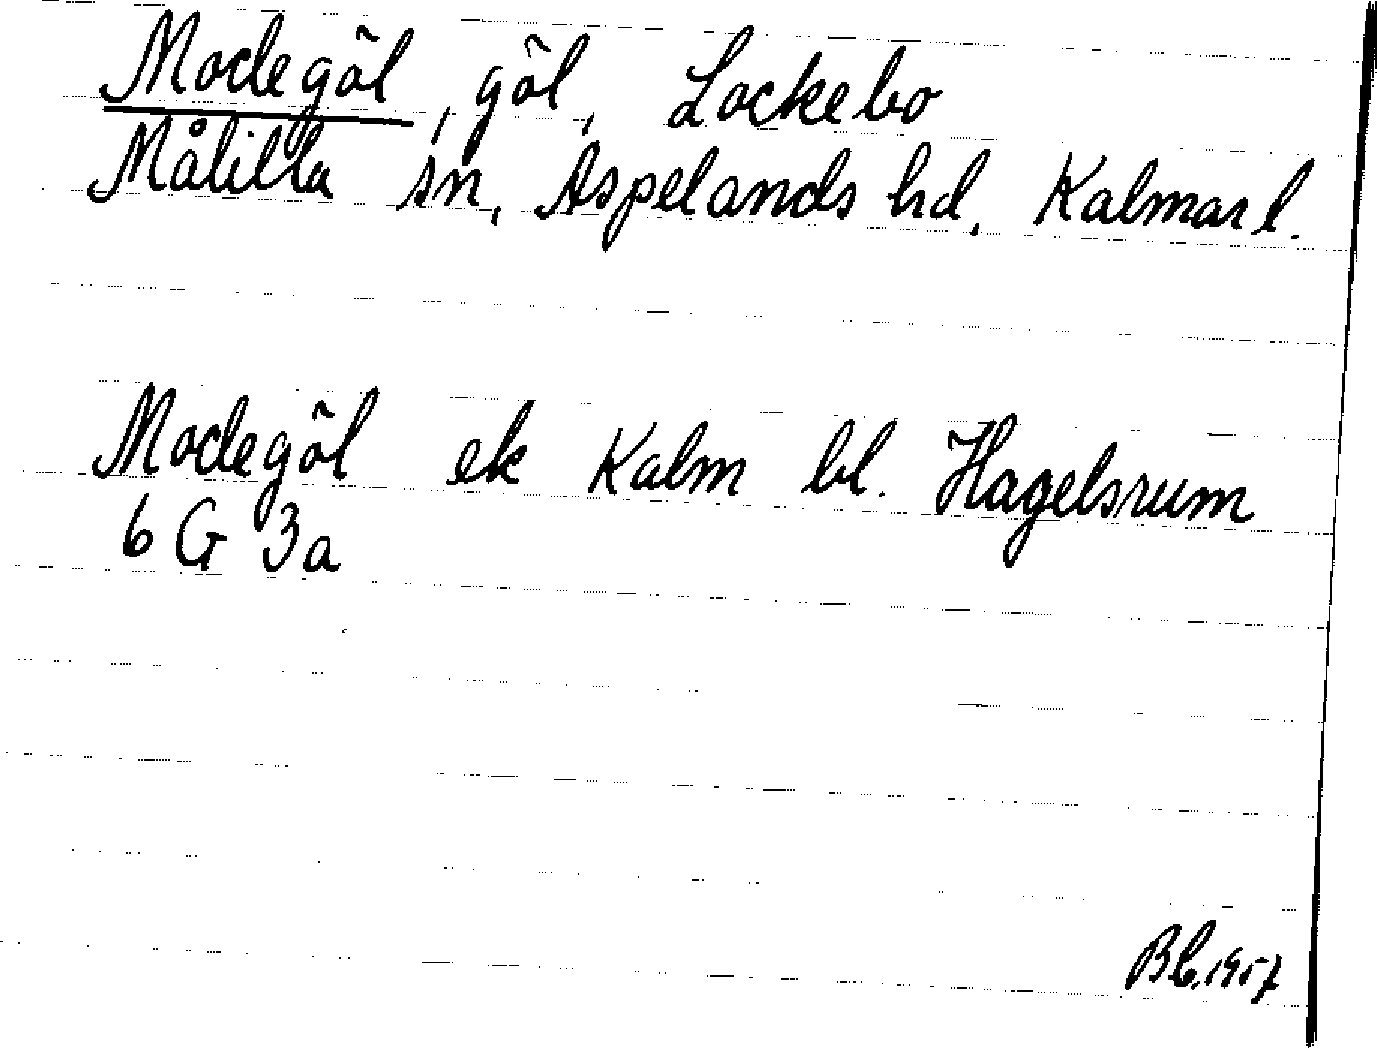 Modegöl, göl, Lockebo
Målilla sn, Aspelands hd, Kalmar l.
Modegöl ek Kalm bl. Hagelsrum
6 G 3a
Bb. 1957